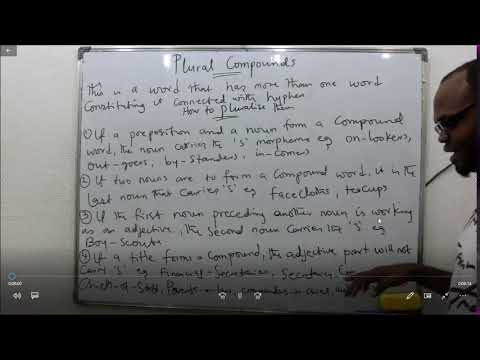 Plural Compounds
This is a word that has more than one word
Constituting it connected with hyphen
How to pluralise them
① If a preposition and a noun form a compound
word, the noun carries the 's' morpheme eg on-lookers,
out-goers, by-standers, in-comers
② If two nouns are to form a compound word, it is the
last noun that carries 's' eg facecloths, teacups
③ If the first noun preceding another noun is working
as an adjective, the second noun carries the 's' eg
Boy-Scouts
④ If a title forms a compound, the adjective part will not
carry 's' eg Financial-Secretaries, Secretaries
Chiefs-of-Staff, commanders-in-chief,
0:00:00
0:09:14